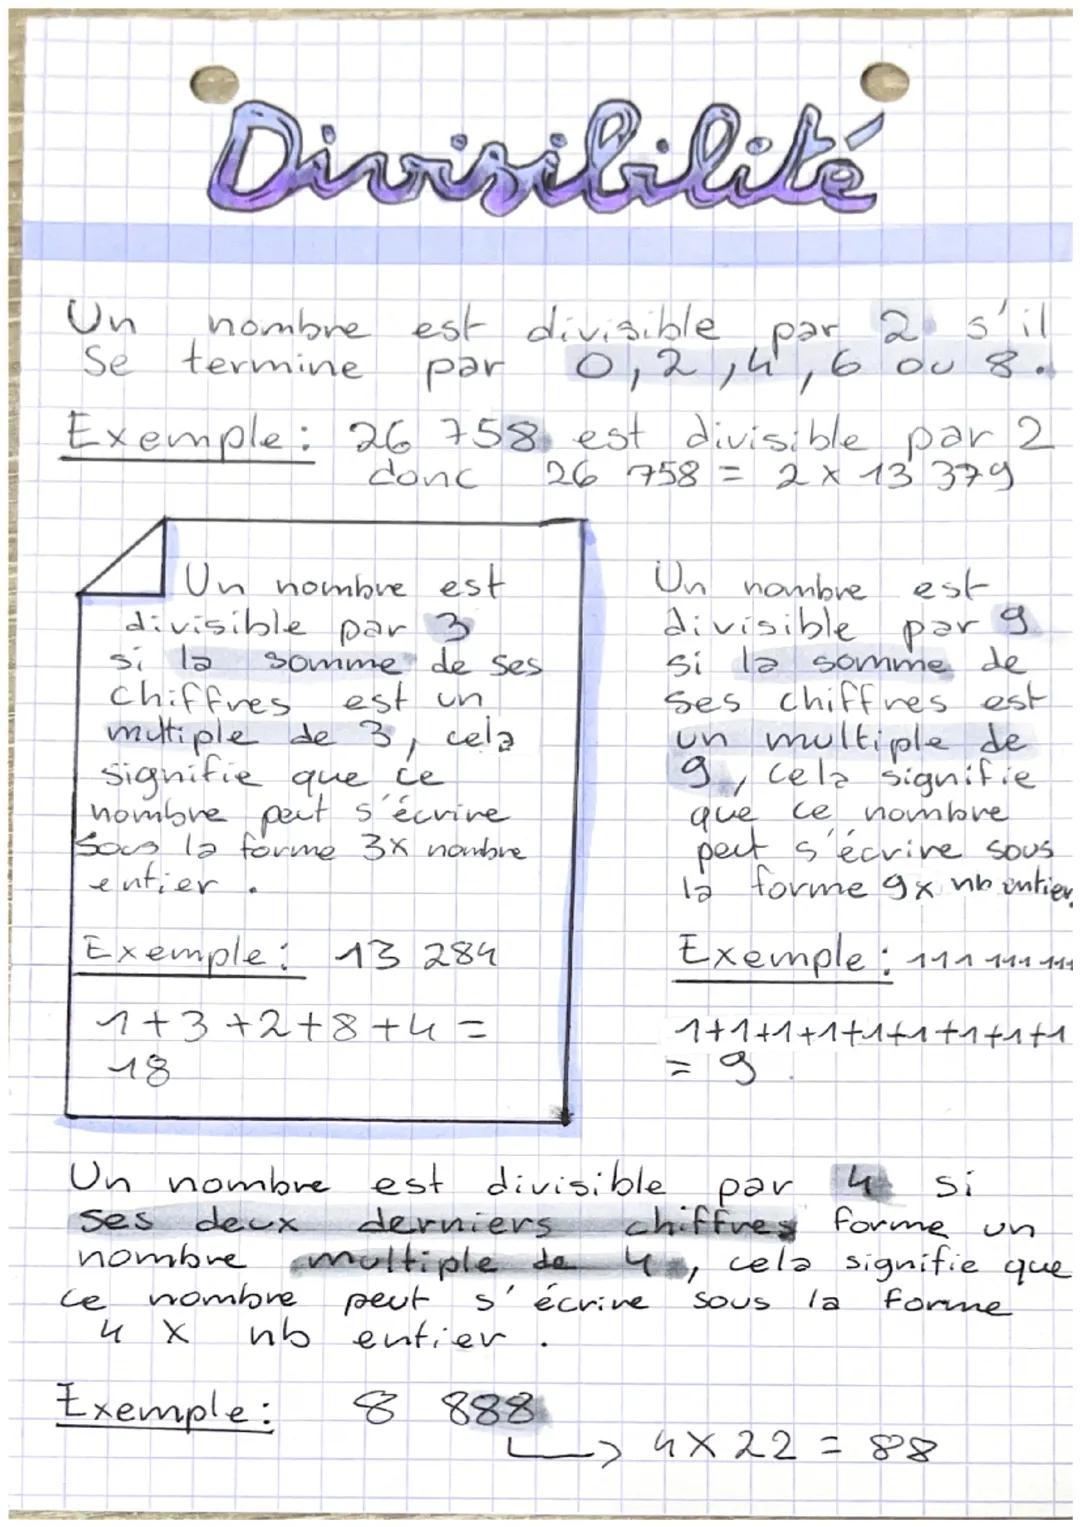 Divisibilité
Un nombre est divisible par 2 s'il
se termine par 0, 2, 4, 6 ou 8.
Exemple: 26 758 est divisible par 2
donc 26 758 = 2 x 13 379
Un nombre est
divisible par 3
si la somme de ses
chiffres est un
multiple de 3, cela
signifie que ce
nombre peut s'écrire
sous la forme 3x nombre
entier.
Exemple: 13 284
1+3+2+8+4=
18
Un nombre est
divisible par 9
si la somme de
ses chiffres est
un multiple de
9, cela signifie
que ce nombre
peut s'écrire sous
la forme 9x nb entier.
Exemple: 111 111 111
1+1+1+1+1+1+1+1+1
= 9
Un nombre est divisible par 4 si
ses deux derniers chiffres forme un
nombre multiple de 4, cela signifie que
ce nombre peut s'écrire sous la forme
4 x nb entier.
Exemple: 8 888
4 x 22 = 88